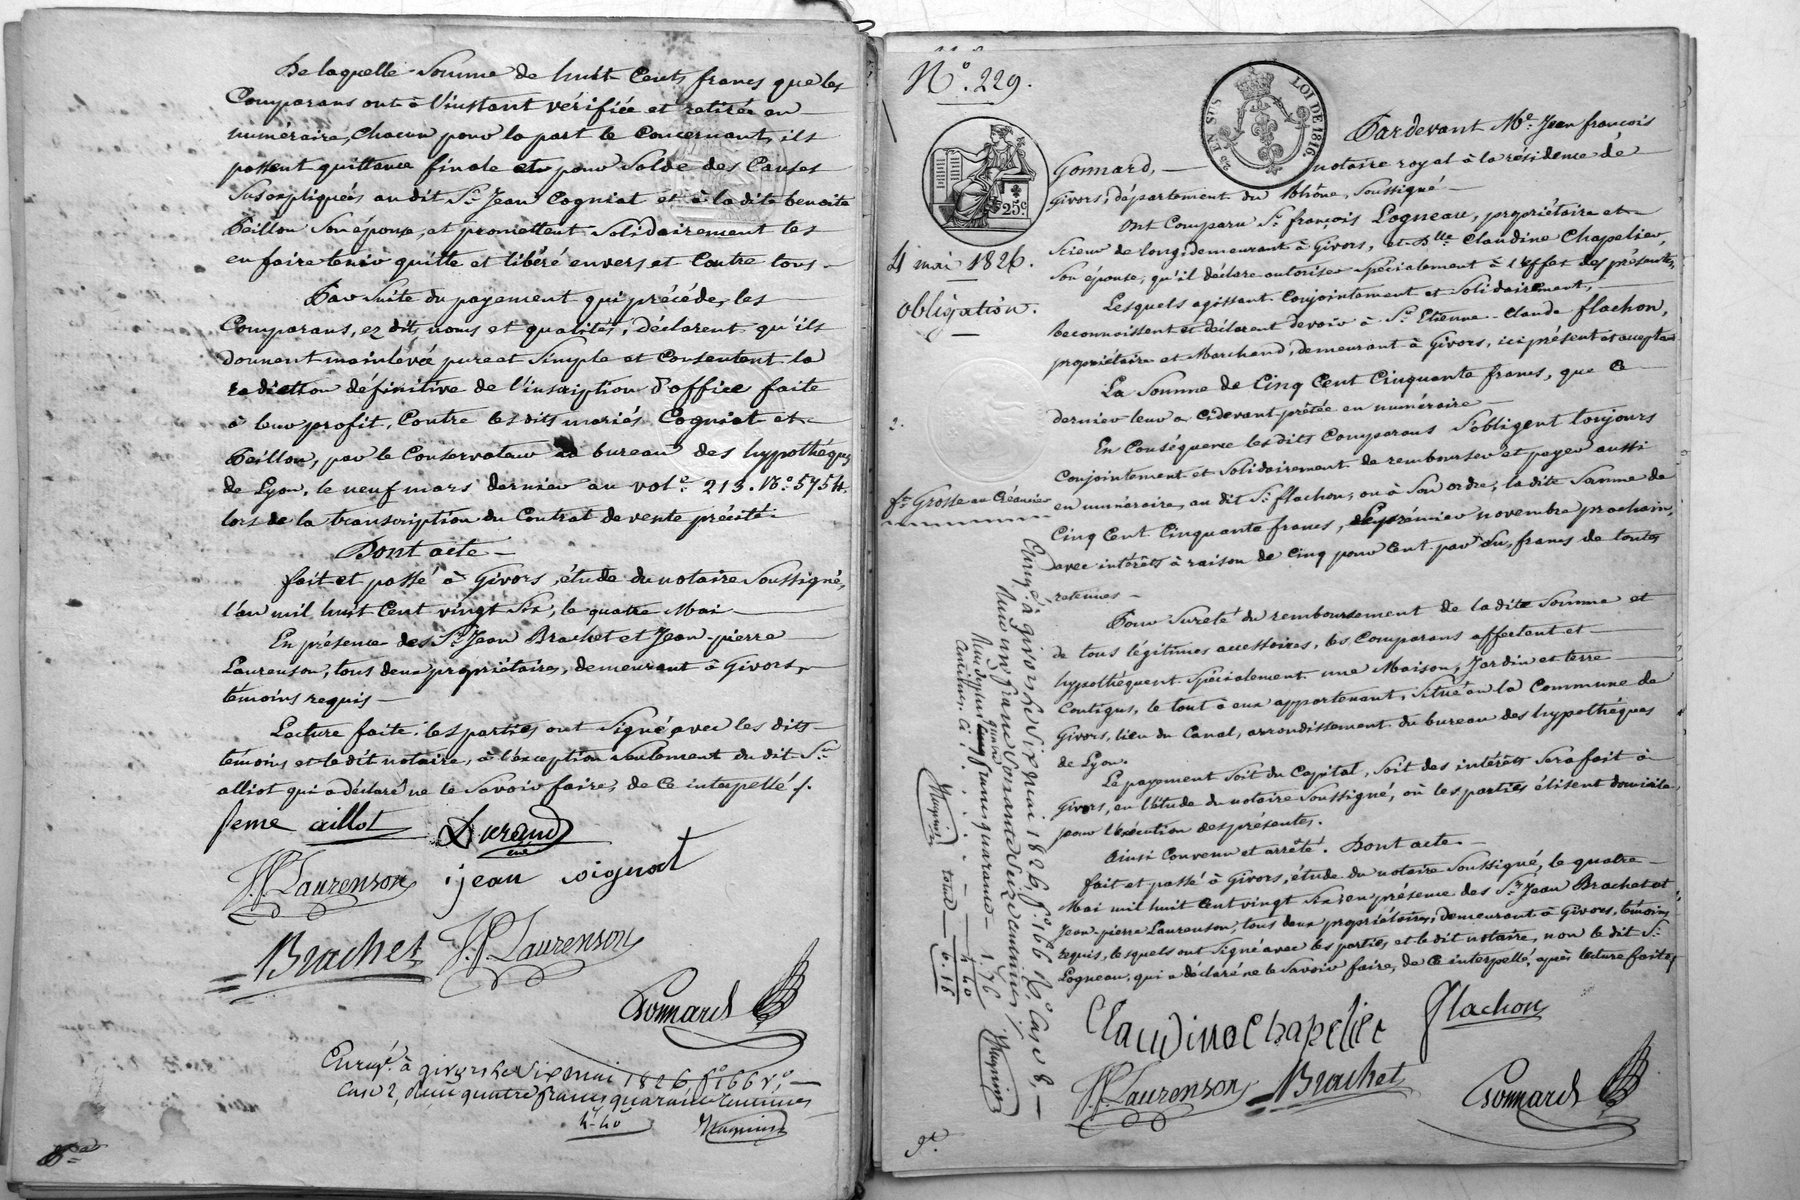 De laquelle Somme de huit Cents francs que les
Comparans ont à l'instant vérifiée et retirée en
numéraire, Chacun pour la part le Concernant, ils
passent quittance finale et pour Solde des Causes
Susexpliquées au dit Sr. Jean Cogniat et à la dite benoite
Peillon Son épouse, et promettent Solidairement les
en faire tenir quitte et libéré envers et Contre tous.
Par Suite du payement qui précéde, les
Comparans, ez dits noms et qualités, déclarent qu'ils
donnent mainlevée pure et Simple et Consentent la
radiation définitive de l'inscription d'office faite
à leur profit, Contre les dits mariés Cogniat et
Peillon, par le Conservateur au bureau des hypothéques
de Lyon, le neuf mars dernier au vol. 213. No. 5754.
lors de la transcription du Contrat de vente précité.
Dont acte
fait et passé à Givors, étude du notaire Soussigné,
l'an mil huit Cent vingt Six, le quatre Mai
En présence des Srs. Jean Brachet et Jean-pierre
Laurenson, tous deux propriétaires, demeurant à Givors,
témoins requis
Lecture faite, les parties ont Signé avec les dits
témoins et le dit notaire, à l'exception Seulement du dit Sr.
alliot qui a déclaré ne le Savoir faire, de Ce interpellé.
feme aillot Durand
JP Laurenson jean coignat
Brachet JP Laurenson
Gonnard
Enregé. à givors le Six mai 1826 fo. 166 Vo.
Case 2, Reçu quatre francs quarante Centimes
4-40
No. 229.
2c EN SUS
LOI DE 1816.
25c
4 mai 1826.
obligation.
2.
fe. Grosse au Créancier
Pardevant Me. Jean françois
Gonnard, notaire royal à la résidence de
Givors, département du Rhône, Soussigné
Ont Comparu Sr. françois Logneau, propriétaire et
Scieur de long, demeurant à Givors, et Dlle. Claudine Chapelier,
Son épouse, qu'il déclare autoriser Spécialement à l'effet des présentes,
Lesquels agissant Conjointement et Solidairement,
Reconnoissent et déclarent devoir à Sr. Etienne-Claude flachon,
propriétaire et Marchand, demeurant à Givors, ici présent et acceptant
La Somme de Cinq Cent Cinquante francs, que Ce
dernier leur a Cidevant prêtée en numéraire
En Conséquence les dits Comparans S'obligent toujours
Conjointement et Solidairement de rembourser et payer aussi
en numéraire, au dit Sr. flachon, ou à Son ordre, la dite Somme de
Cinq Cent Cinquante francs, le prémier novembre prochain,
avec intérêts à raison de Cinq pour Cent par an, francs de toutes
retenues
Pour Sureté du remboursement de la dite Somme et
de tous légitimes accessoires, les Comparans affectent et
hypothéquent Spécialement une Maison, Jardin et terre
Contigus, le tout à eux appartenant, Situé en la Commune de
Givors, lieu du Canal, arrondissement du bureau des hypothéques
de Lyon.
Le payement Soit du Capital, Soit des intérêts Sera fait à
Givors, en l'étude du notaire Soussigné, où les parties élisent domicile
pour l'exécution des présentes.
Ainsi Convenu et arrêté. Dont acte.
fait et passé à Givors, étude du notaire Soussigné, le quatre
Mai mil huit Cent vingt Six en présence des Srs. Jean Brachet et
Jean-pierre Laurenson, tous deux propriétaires, demeurant à Givors, témoins
requis, lesquels ont Signé avec les parties et le dit notaire, non le dit Sr.
Logneau, qui a déclaré ne le Savoir faire, de Ce interpellé, après lecture faite
Claudine Chapelier flachon
JP Laurenson Brachet Gonnard
Enregé. à givors le Six mai 1826, fo. 166 Vo. Case 8,
Reçu un franc Soixante Seize Centimes
1.76
4 40
total 6.16